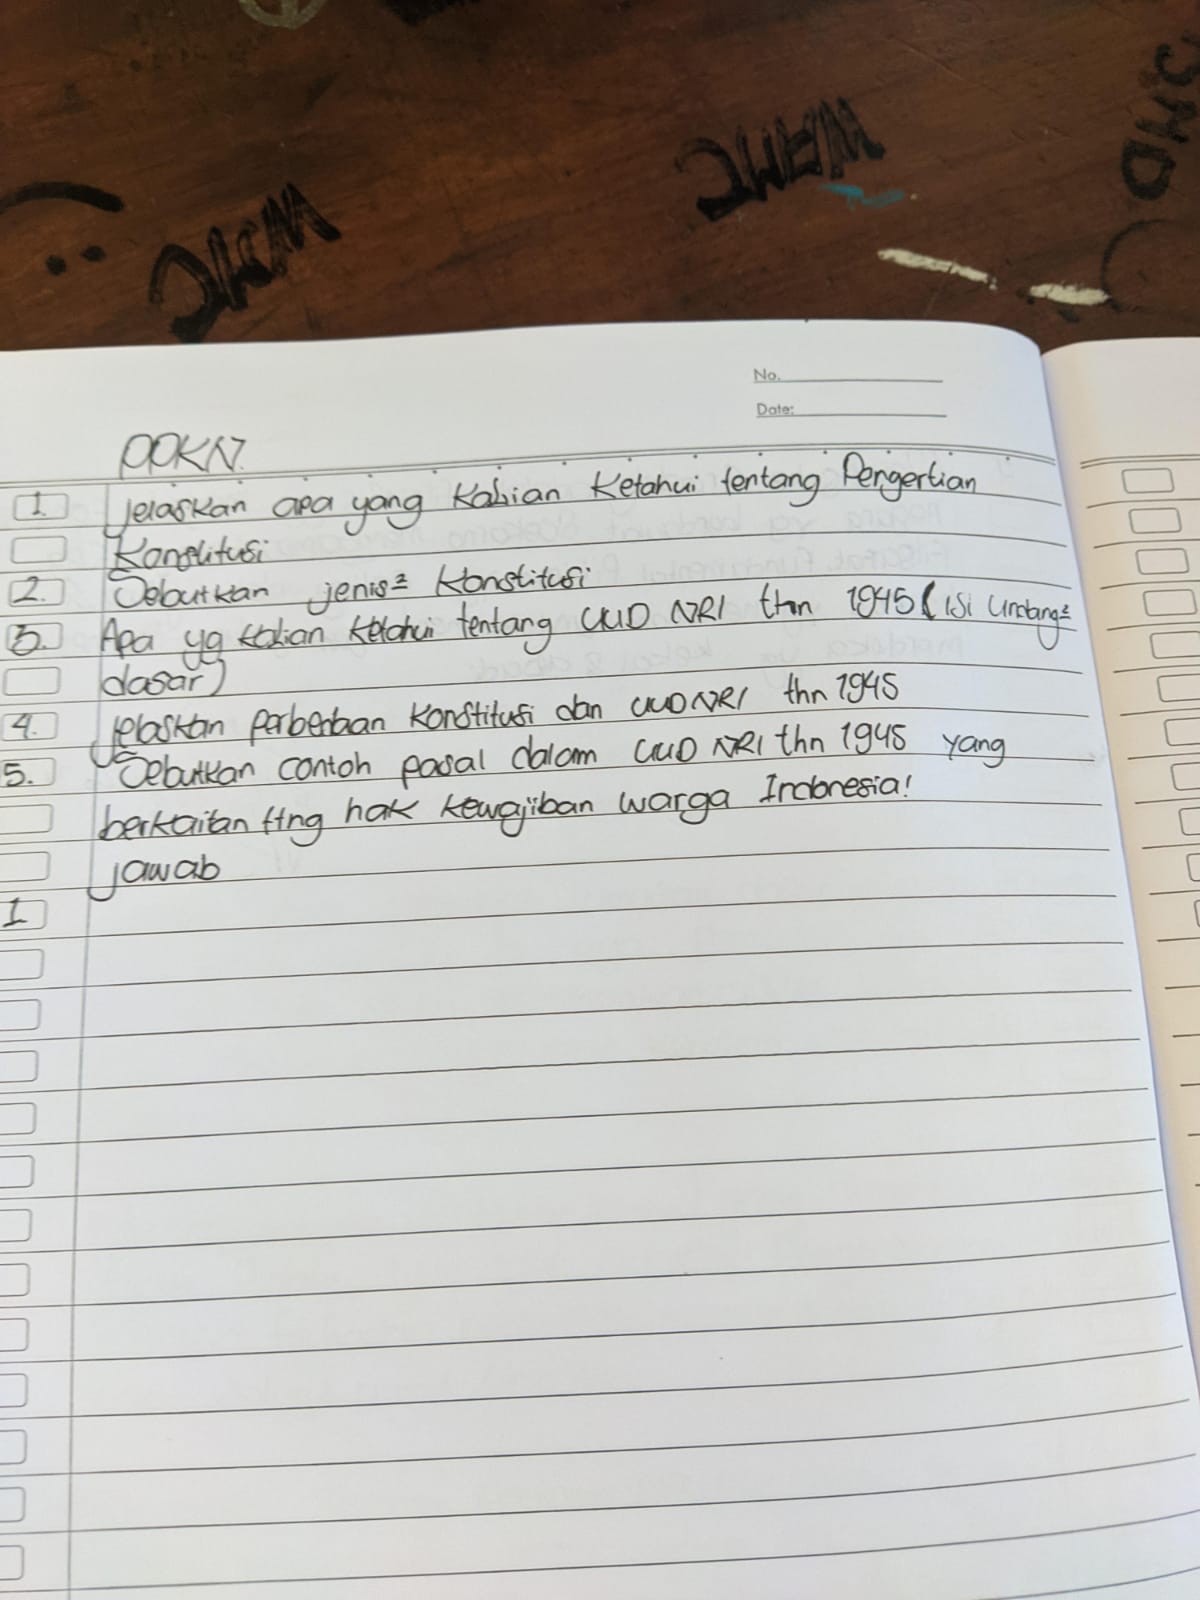 WAMC
WAMC
No.
Date:
PPKN
1. Jelaskan apa yang Kalian Ketahui tentang Pengertian
Konstitusi
2. Sebutkan jenis² Konstitusi
3. Apa yg kalian Ketahui tentang UUD NRI thn 1945 (isi Undang²
dasar)
4. Jelaskan perbedaan Konstitusi dan UUD NRI thn 1945
5. Sebutkan contoh pasal dalam UUD NRI thn 1945 yang
berkaitan ttng hak kewajiban warga Indonesia!
jawab
1